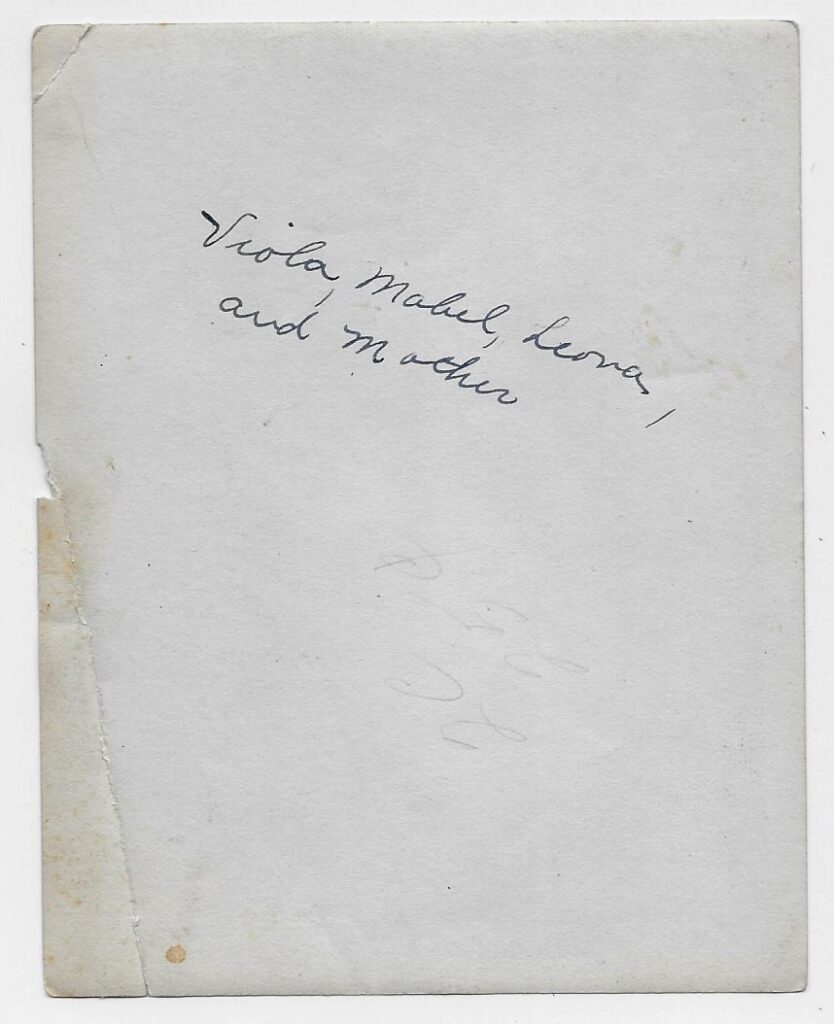 Viola, Mabel, Leona,
and Mother